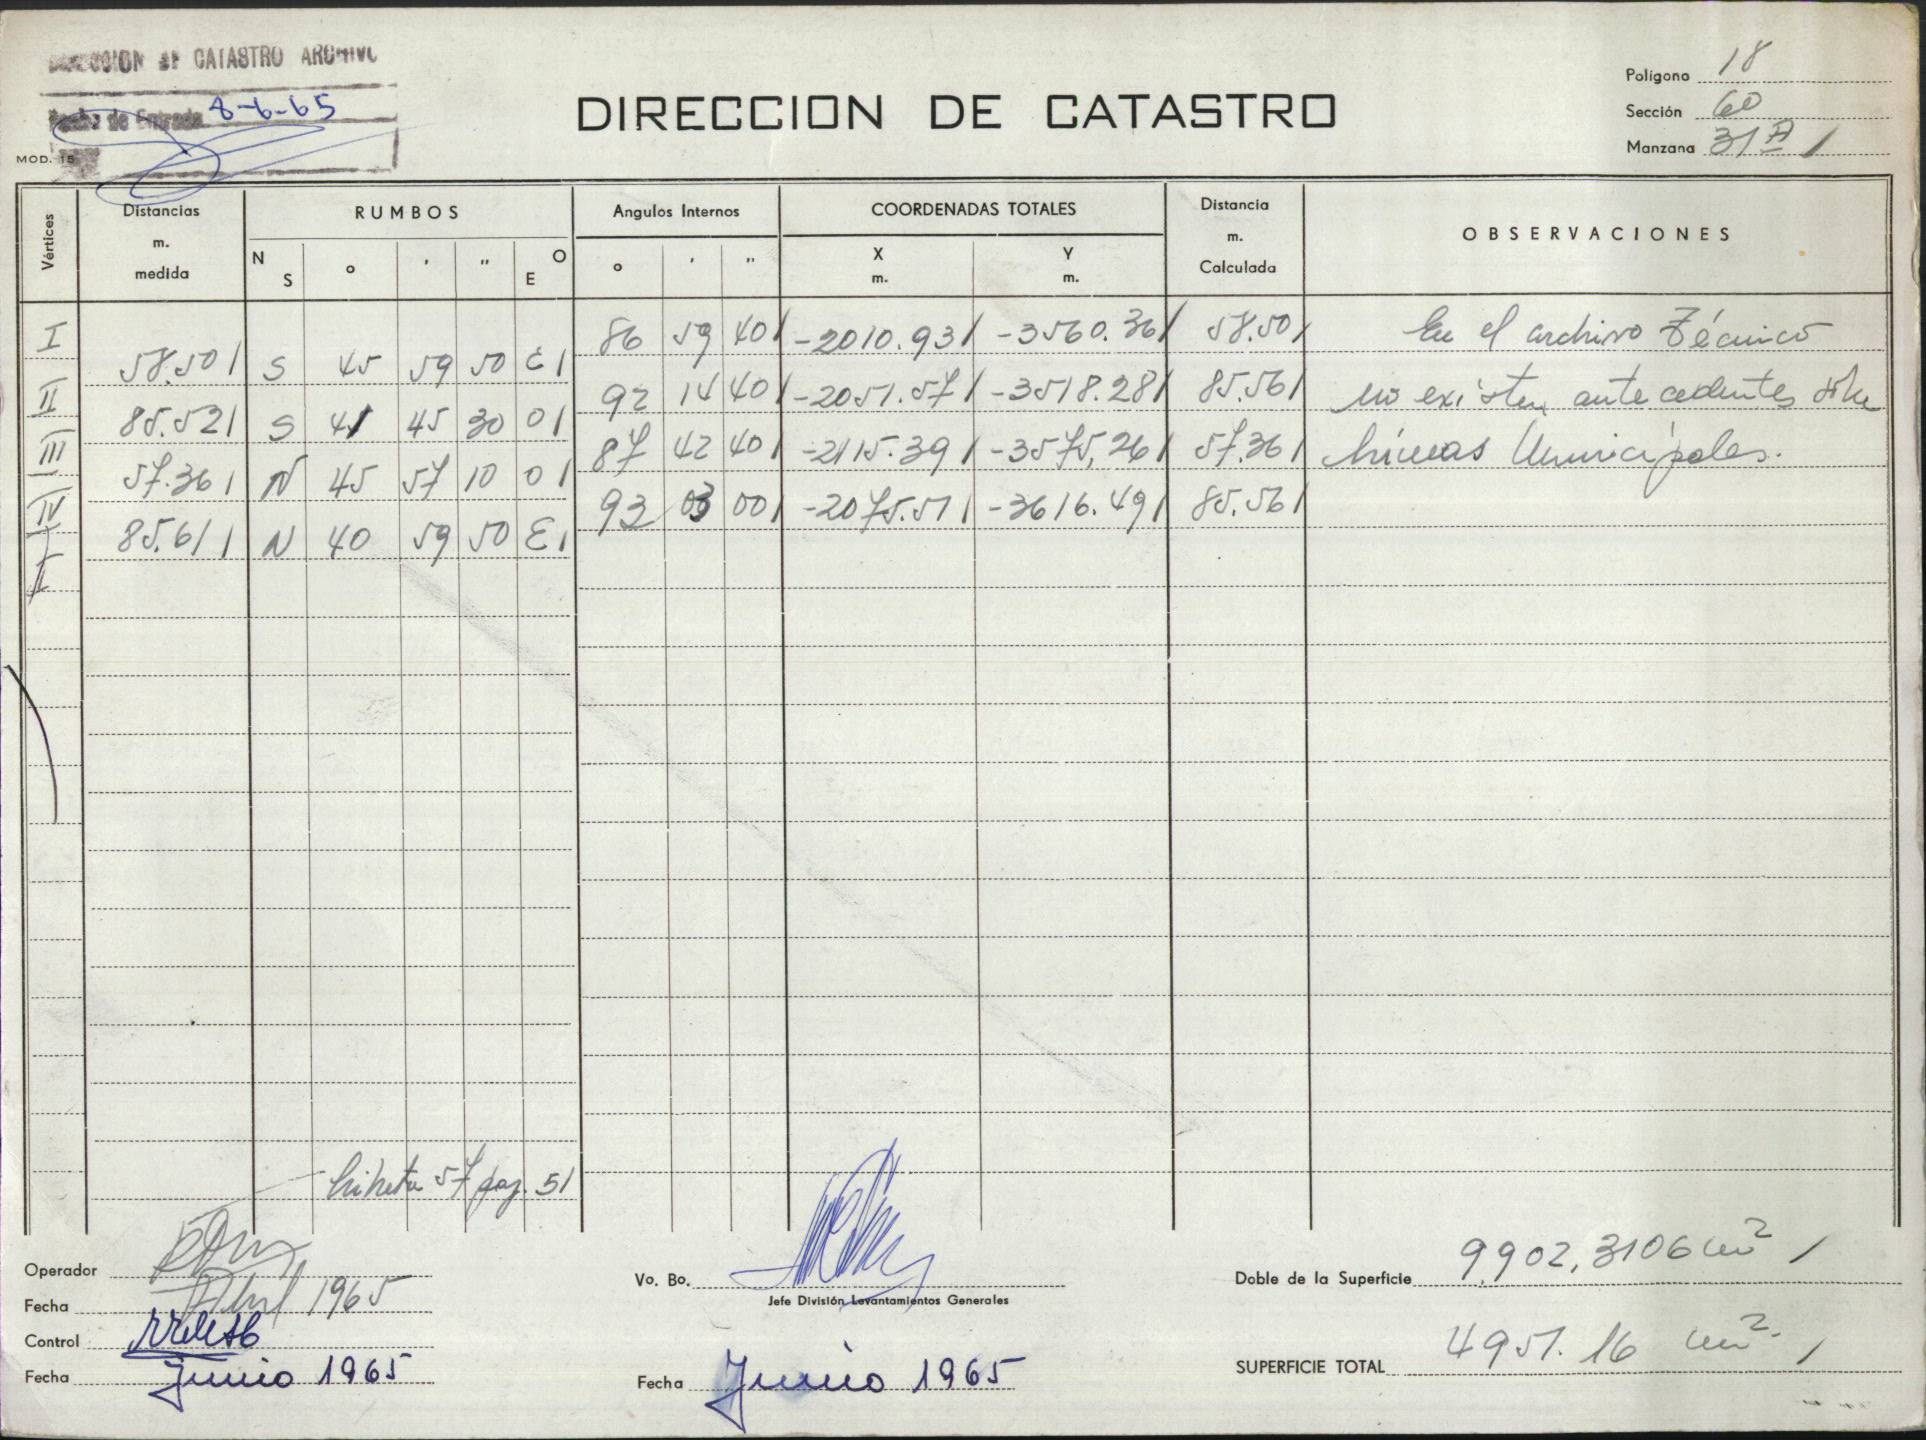 DIRECCION DE CATASTRO ARCHIVO
Fecha de Entrada 8-6-65
MOD. 15
DIRECCION DE CATASTRO
Polígono 18
Sección 60
Manzana 31 A /
Vértices
Distancias m. medida
RUMBOS
N S o ' " E O
Angulos Internos
o ' "
COORDENADAS TOTALES
X m. Y m.
Distancia m. Calculada
OBSERVACIONES
I 86 59 40/ -2010.93/ -3560.36/ 58.50/ En el archivo Técnico
58.50/ S 45 59 50 E/
II 92 14 40/ -2051.57/ -3518.28/ 85.56/ no existen antecedentes sobre
85.52/ S 41 45 30 O/
III 87 42 40/ -2115.39/ -3575,26/ 57.36/ líneas Municipales.
57.36/ N 45 57 10 O/
IV 93 03 00/ -2075.51/ -3616.49/ 85.56/
85.61/ N 40 59 50 E/
I
libreta 57 pag. 51
Operador
Fecha Abril 1965
Control
Fecha Junio 1965
Vo. Bo.
Jefe División Levantamientos Generales
Fecha Junio 1965
Doble de la Superficie 9902,3106 m2 /
SUPERFICIE TOTAL 4951.16 m2. /